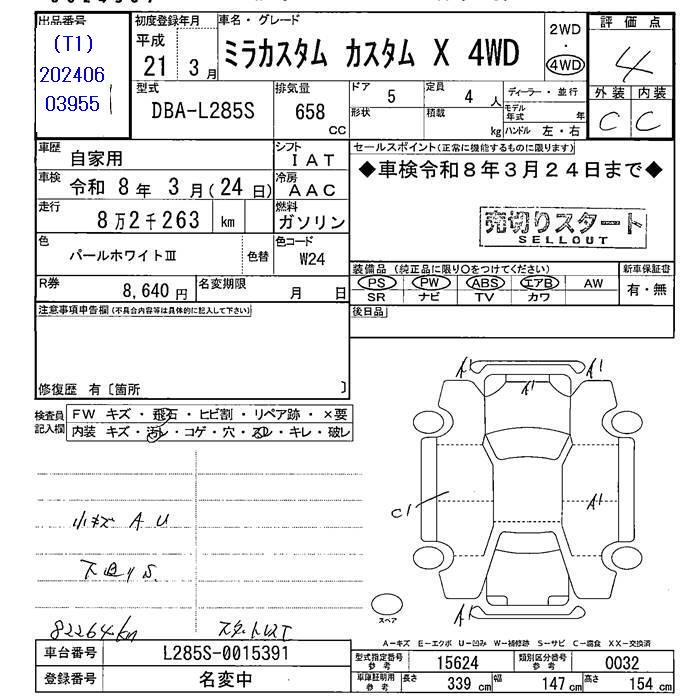 出品番号
(T1)
202406
03955
初度登録年月
平成
21 3月
車名・グレード
ミラカスタム カスタム X 4WD
2WD
・
4WD
評価点
4
外装 内装
C C
型式
DBA-L285S
排気量
658
CC
ドア
5
定員
4 人
形状
積載
kg
ディーラー・並行
モデル年式 年
ハンドル 左・右
車歴
自家用
シフト
IAT
車検
令和 8年 3月(24日)
冷房
AAC
走行
8万2千263 km
燃料
ガソリン
色
パールホワイトⅢ
色替
色コード
W24
R券
8,640円
名変期限
月 日
セールスポイント(正常に機能するものに限ります)
◆車検令和8年3月24日まで◆
売切りスタート
SELLOUT
装備品 (純正品に限り○をつけてください)
新車保証書
PS PW ABS エアB AW
SR ナビ TV カワ
有・無
後日品
注意事項申告欄(不具合内容等は具体的に記入して下さい)
修復歴 有〔箇所 〕
検査員
記入欄
FW キズ・飛石・ヒビ割・リペア跡・×要
内装 キズ・汚レ・コゲ・穴・スレ・キレ・破レ
小キズ A U
下廻りS.
82264km
A1 A1
A1
C1
A1
A1
スペア
A-キズ E-エクボ U-凹み W-補修跡 S-サビ C-腐食 XX-交換済
車台番号
L285S-0015391
登録番号
名変中
型式指定番号
参考
15624
類別区分番号
参考
0032
車庫証明用
参考
長さ 339 cm 幅 147 cm 高さ 154 cm